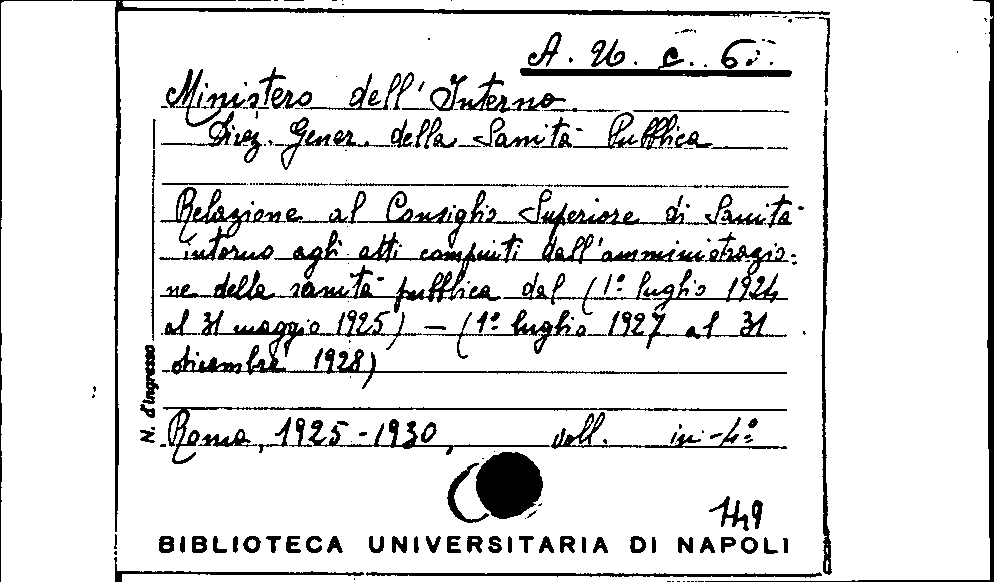 A. 26. C. 6
Ministero dell'Interno
Direz. Gener. della Sanità Pubblica
Relazione al Consiglio Superiore di Sanità
intorno agli atti compiuti dall'amministrazio=
ne della sanità pubblica dal (1º luglio 1924
al 31 maggio 1925) — (1º luglio 1927 al 31
dicembre 1928)
N. d'ingresso
Roma, 1925-1930, voll. in-4º
149
BIBLIOTECA UNIVERSITARIA DI NAPOLI